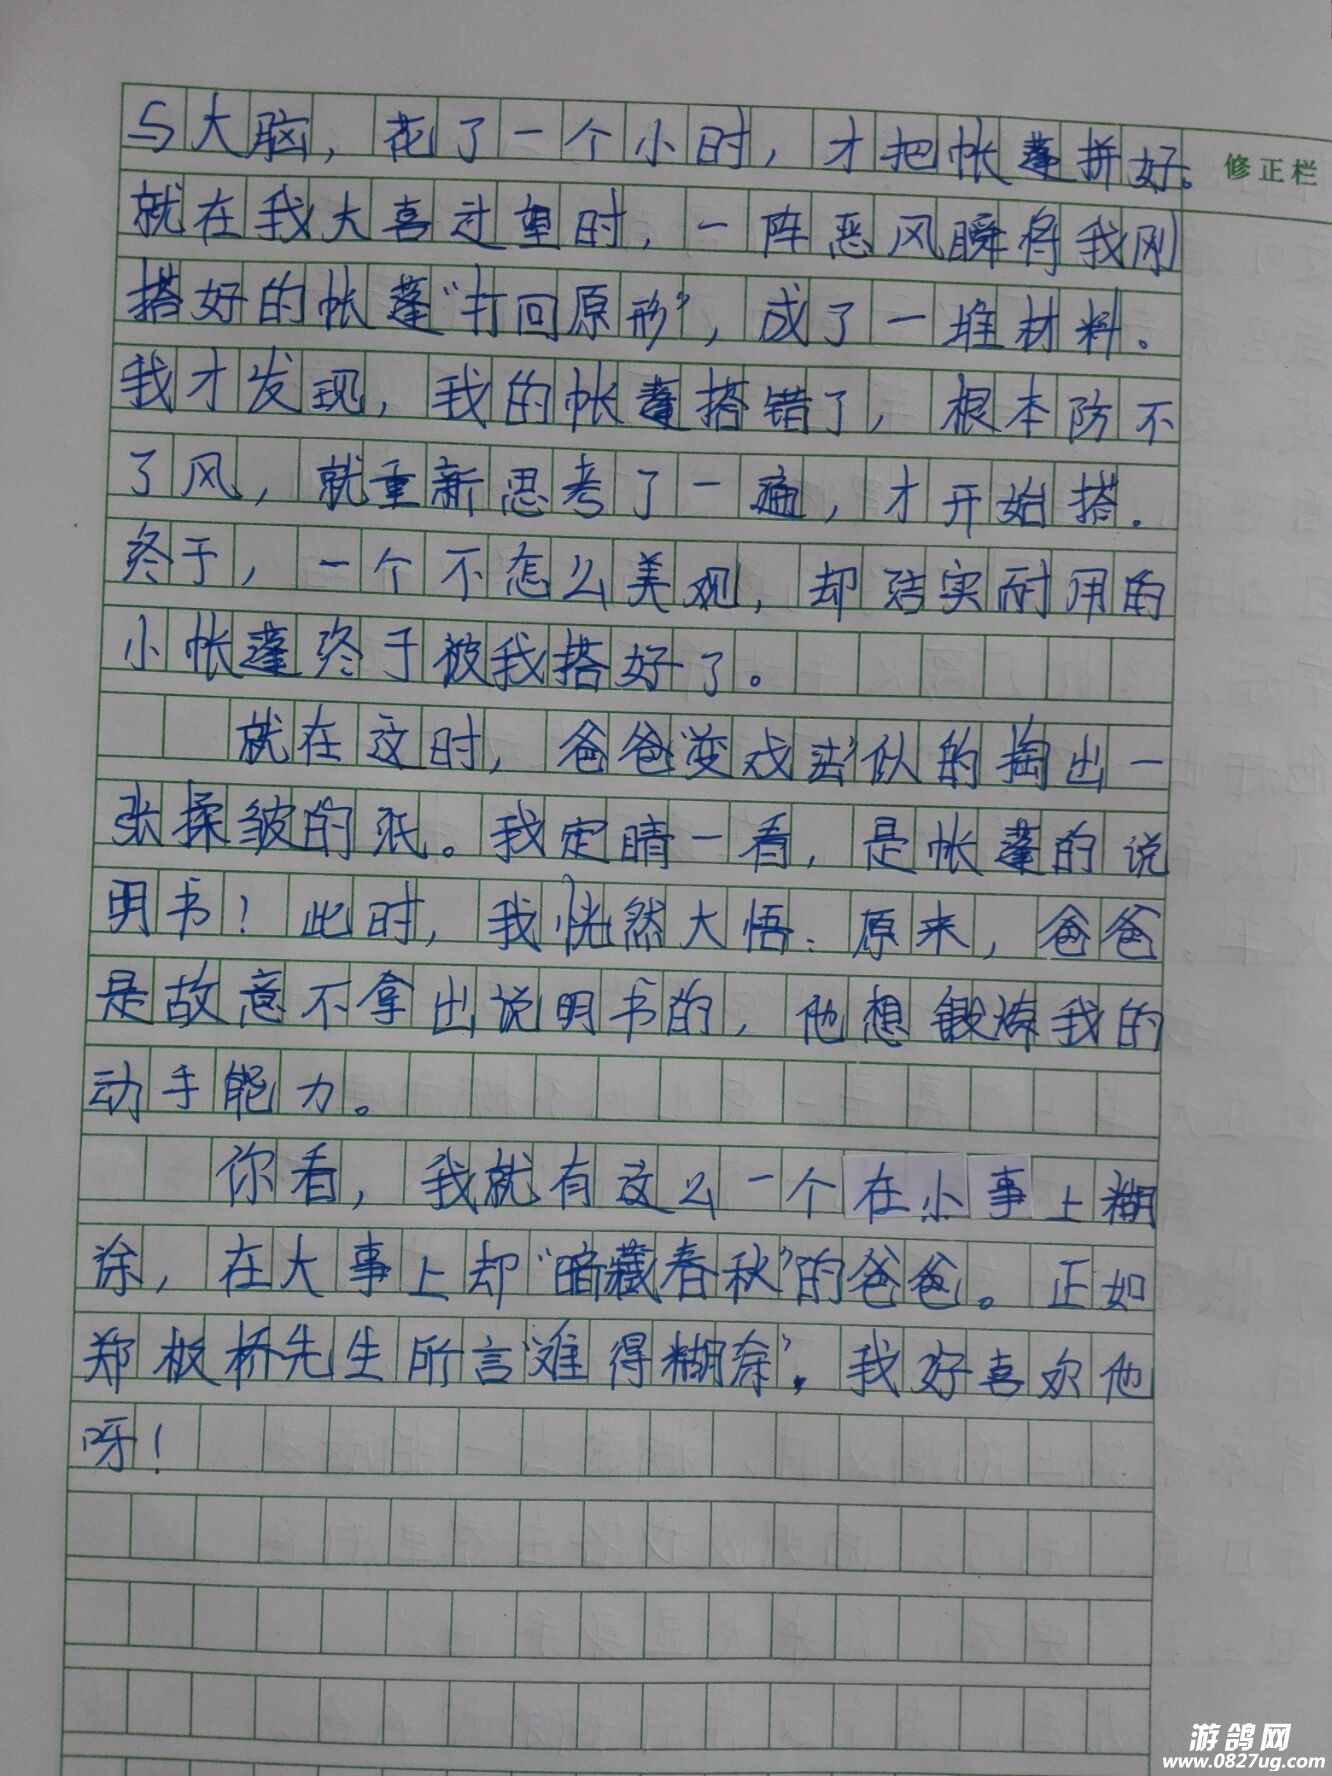 与大脑，花了一个小时，才把帐蓬拼好。
修正栏
就在我大喜过望时，一阵恶风瞬将我刚
搭好的帐蓬“打回原形”，成了一堆材料．
我才发现，我的帐蓬搭错了，根本防不
了风，就重新思考了一遍，才开始搭．
终于，一个不怎么美观，却结实耐用的
小帐蓬终于被我搭好了。
就在这时，爸爸“变戏法”似的掏出一
张揉皱的纸。我定睛一看，是帐蓬的说
明书！此时，我恍然大悟：原来，爸爸
是故意不拿出说明书的，他想锻炼我的
动手能力。
你看，我就有这么一个在小事上糊
涂，在大事上却“暗藏春秋”的爸爸。正如
郑板桥先生所言“难得糊涂”．我好喜欢他
呀！
游鸽网
www.0827ug.com